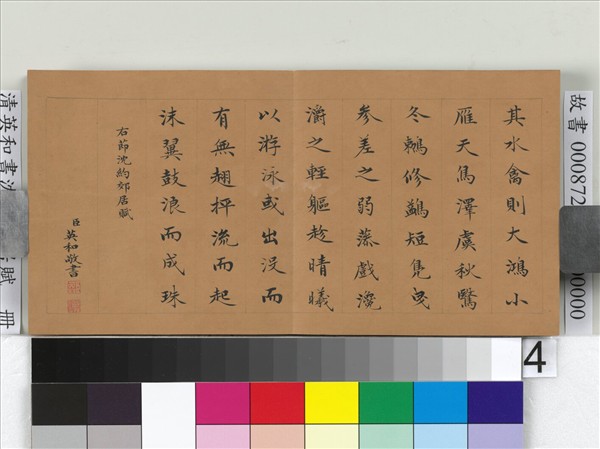 其水禽則大鴻小
雁天澤虞秋鷖
冬修鷁短凫曳
參差之弱藻戲瀺
灂之輕軀趁晴曦
以游泳或出沒而
有無翅抨流而起
沫翼鼓浪而成珠
右節沈約郊居賦
臣英和敬書
故書 00087 00000
清英和書 賦 冊
4